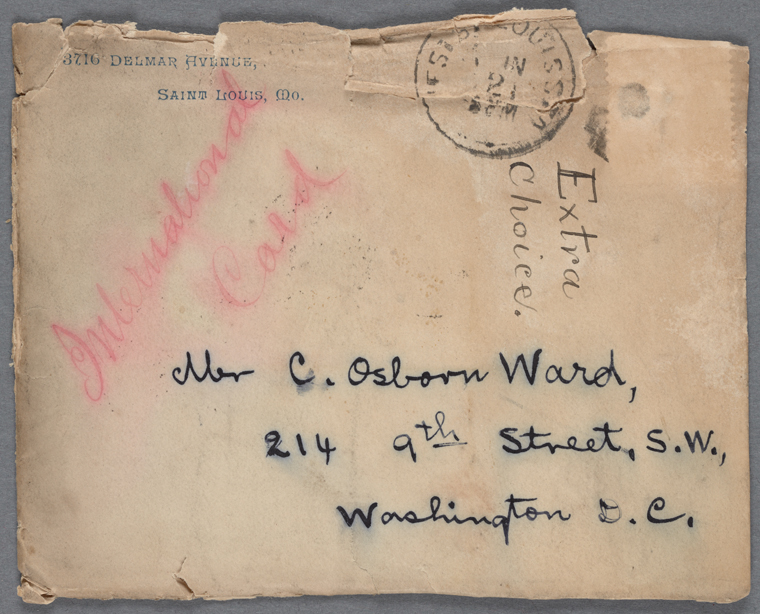 3716 DELMAR AVENUE,
SAINT LOUIS, MO.
ST. LOUIS
21
International
Card
Extra
Choice.
Mr C. Osborn Ward,
214 9th Street, S.W.,
Washington D.C.